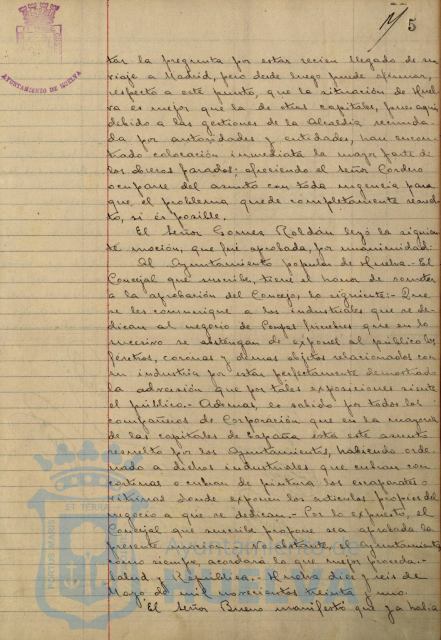 5
AYUNTAMIENTO DE HUELVA
tar la pregunta por estar recien llegado de su
viaje a Madrid, pero desde luego puede afirmar,
respecto a este punto, que la situación de Huel-
va es mejor que la de otras capitales, pues aqui
debido a las gestiones de la Alcaldia secunda-
da por autoridades y entidades, han encon-
trado colocación inmediata la mayor parte de
los obreros parados; ofreciendo el señor Cordero
ocuparse del asunto con toda urgencia para
que, el problema quede completamente resuel-
to, si és posible.
El Señor Gomez Roldán leyó la siguien-
te moción, que fué aprobada, por unanimidad:
Al Ayuntamiento popular de Huelva.- El
Concejal que suscribe, tiene el honor de someter
a la aprobación del Concejo, lo siguiente:- Que
se les comunique a los industriales que se de-
dican al negocio de Pompas fúnebres que en lo
sucesivo se abstengan de exponer al público los
feretros, coronas y demas objetos relacionados con
su industria por estar perfectamente demostrado
la adversión que por tales exposiciones siente
el público.- Ademas, es sabido por todos los
compañeros de Corporación que en la mayoria
de las capitales de España está este asunto
resuelto por los Ayuntamientos, habiendo orde-
nado a dichos industriales que cubran con
cortinas o cubran de pintura los escaparates o
vitrinas donde exponen los articulos propios del
negocio a que se dedican.- Por lo expuesto, el
Concejal que suscribe propone sea aprobada la
presente moción.- No obstante, el Ayuntamiento
como siempre, acordará lo que mejor proceda.-
Salud y República.- Huelva diez y seis de
Mayo de mil novecientos treinta y uno.
El Señor Bueno manifestó que ya habia